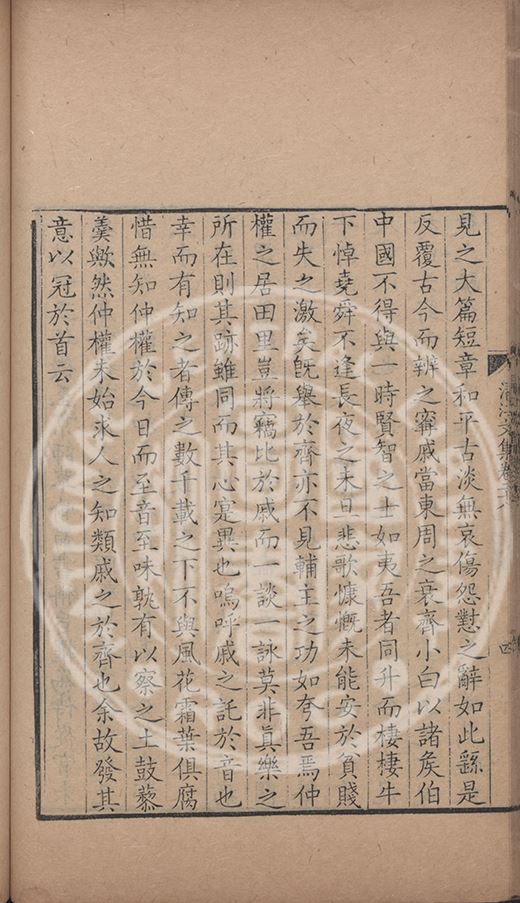 見之大篇短章和平古淡無哀傷怨懟之辭如此繇是
反覆古今而辨之甯戚當東周之衰齊小白以諸矦伯
中國不得與一時賢智之士如夷吾者同升而棲棲牛
下悼堯舜不逢長夜之未旦悲歌慷慨未能安於負賤
而失之激矣旣舉於齊亦不見輔主之功如夸吾焉仲
權之居田里豈將竊比於戚而一談一詠莫非眞樂之
所在則其跡雖同而其心寔異也嗚呼戚之託於音也
幸而有知之者傳之數千載之下不與風花霜葉俱腐
惜無知仲權於今日而至音至味孰有以察之土鼓藜
羹歟然仲權未始求人之知類戚之於齊也余故發其
意以冠於首云
清江文集卷二八
四